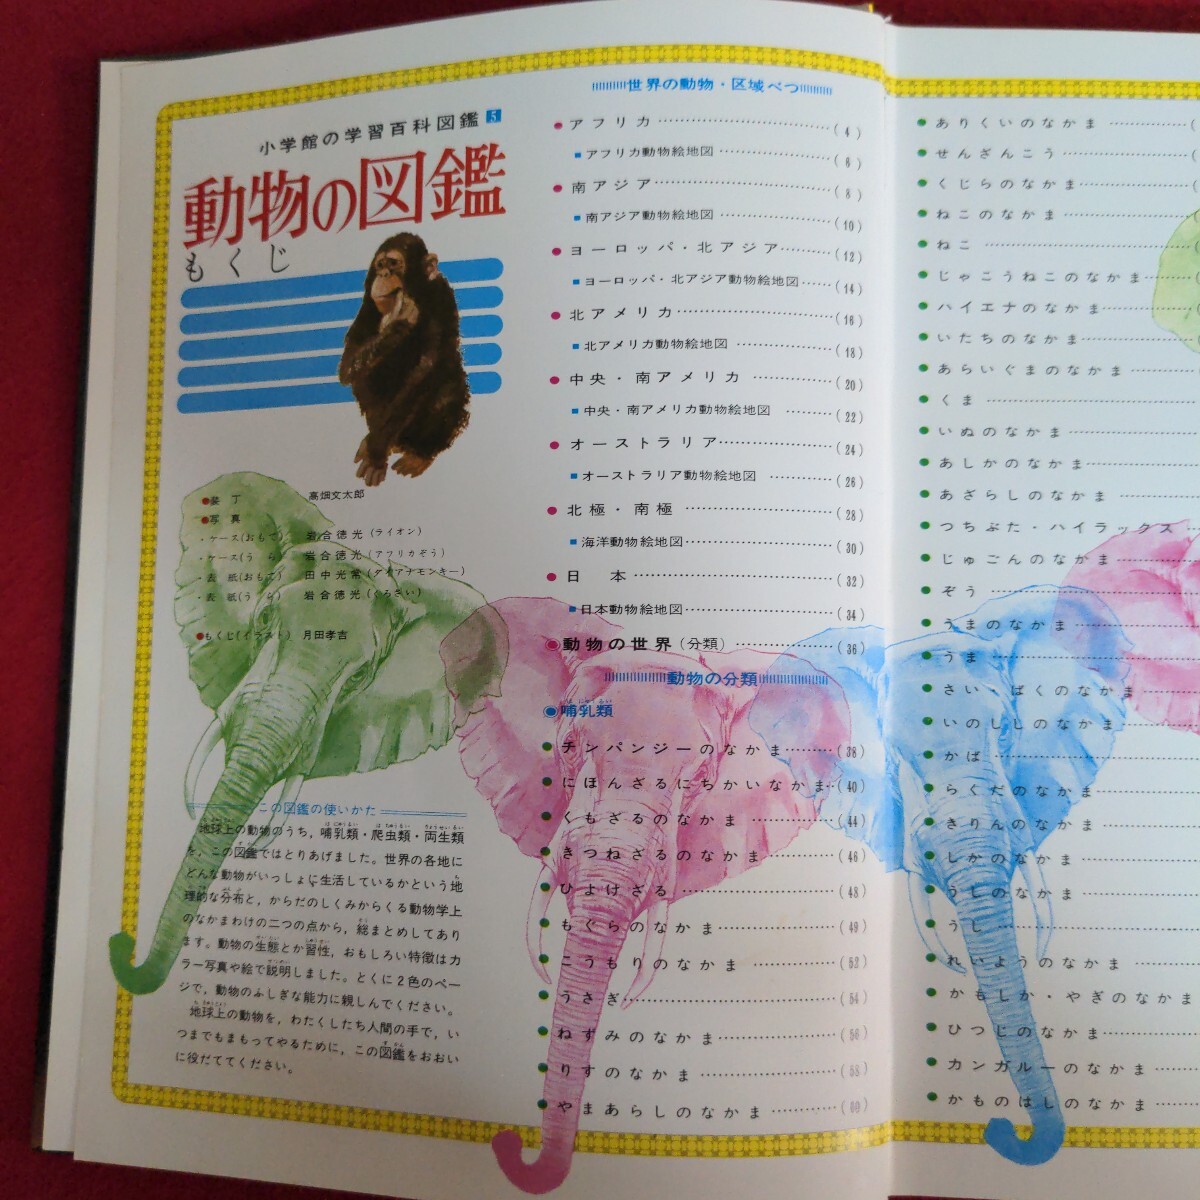 小学館の学習百科図鑑 5
動物の図鑑
もくじ
●装丁 高畑文太郎
●写真
・ケース(おもて) 岩合徳光(ライオン)
・ケース(うら) 岩合徳光(アフリカぞう)
・表紙(おもて) 田中光常(ダイアナモンキー)
・表紙(うら) 岩合徳光(くろさい)
●もくじ(イラスト) 月田孝吉
この図鑑の使いかた
地球上の動物のうち,哺乳類・爬虫類・両生類
を,この図鑑ではとりあげました。世界の各地に
どんな動物がいっしょに生活しているかという地
理的な分布と,からだのしくみからくる動物学上
のなかまわけの二つの点から,総まとめしてあり
ます。動物の生態とか習性,おもしろい特徴はカ
ラー写真や絵で説明しました。とくに2色のペー
ジで,動物のふしぎな能力に親しんでください。
地球上の動物を,わたくしたち人間の手で,い
つまでもまもってやるために,この図鑑をおおい
に役だててください。
世界の動物・区域べつ
●アフリカ…………(4)
■アフリカ動物絵地図…………(6)
●南アジア…………(8)
■南アジア動物絵地図…………(10)
●ヨーロッパ・北アジア…………(12)
■ヨーロッパ・北アジア動物絵地図……(14)
●北アメリカ…………(16)
■北アメリカ動物絵地図…………(18)
●中央・南アメリカ…………(20)
■中央・南アメリカ動物絵地図………(22)
●オーストラリア…………(24)
■オーストラリア動物絵地図…………(26)
●北極・南極…………(28)
■海洋動物絵地図…………(30)
●日本…………(32)
■日本動物絵地図…………(34)
◉動物の世界(分類)…………(36)
動物の分類
◉哺乳類
●チンパンジーのなかま………(38)
●にほんざるにちかいなかま‥(40)
●くもざるのなかま…………(44)
●きつねざるのなかま…………(46)
●ひよけざる…………(48)
●もぐらのなかま…………(49)
●こうもりのなかま…………(52)
●うさぎ…………(54)
●ねずみのなかま…………(56)
●りすのなかま…………(58)
●やまあらしのなかま…………(60)
●ありくいのなかま…………(
●せんざんこう…………(
●くじらのなかま…………(
●ねこのなかま…………
●ねこ…………
●じゃこうねこのなかま……
●ハイエナのなかま…………
●いたちのなかま…………
●あらいぐまのなかま………
●くま…………
●いぬのなかま…………
●あしかのなかま…………
●あざらしのなかま…………
●つちぶた・ハイラックス…
●じゅごんのなかま…………
●ぞう…………
●うまのなかま…………
●うま…………
●さい・ばくのなかま………
●いのししのなかま…………
●かば…………
●らくだのなかま…………
●きりんのなかま…………
●しかのなかま…………
●うしのなかま…………
●うし…………
●れいようのなかま…………
●かもしか・やぎのなかま
●ひつじのなかま…………
●カンガルーのなかま………
●かものはしのなかま………